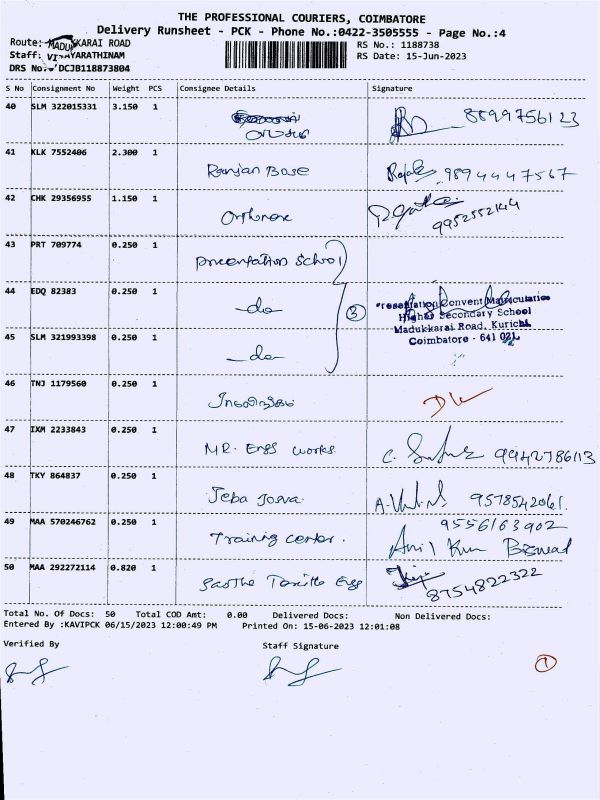 THE PROFESSIONAL COURIERS, COIMBATORE
Delivery Runsheet - PCK - Phone No.:0422-3505555 - Page No.:4
Route: MADUKKARAI ROAD
RS No.: 1188738
Staff: VIJAYARATHINAM
RS Date: 15-Jun-2023
DRS No. DCJB118873804
S No Consignment No Weight PCS Consignee Details Signature
40 SLM 322015331 3.150 1 8899756123
41 KLK 7552406 2.300 1 Ranjan Base 9894447567
42 CHK 29356955 1.150 1 9952552144
43 PRT 709774 0.250 1 Presentation School
44 EDQ 82383 0.250 1 -do- 3
Presentation Convent Matriculation
Higher Secondary School
Madukkarai Road, Kurichi,
Coimbatore - 641 021.
45 SLM 321993398 0.250 1 -do-
46 TNJ 1179560 0.250 1
47 IXM 2233843 0.250 1 MR. Engg works 9942786113
48 TKY 864837 0.250 1 Jeba 9578542061.
49 MAA 570246762 0.250 1 Training center. 9556163902
50 MAA 292272114 0.820 1 Engg 8754822322
Total No. Of Docs: 50 Total COD Amt: 0.00 Delivered Docs: Non Delivered Docs:
Entered By :KAVIPCK 06/15/2023 12:00:49 PM Printed On: 15-06-2023 12:01:08
Verified By Staff Signature
1